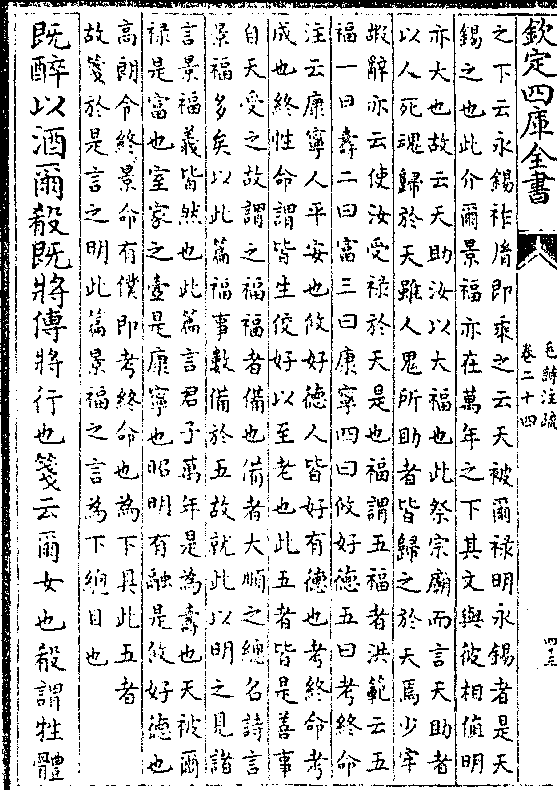 欽定四庫全書
毛詩注疏
卷二十四
四十三
之下云永錫祚胤即乘之云天被爾祿明永錫者是天
錫之也此介爾景福亦在萬年之下其文與彼相值明
亦大也故云天助汝以大福也此祭宗廟而言天助者
以人死魂歸於天雖人鬼所助者皆歸之於天焉少牢
嘏辭亦云使汝受祿於天是也福謂五福者洪範云五
福一曰壽二曰富三曰康寧四曰攸好德五曰考終命
注云康寧人平安也攸好德人皆好有德也考終命考
成也終性命謂皆生佼好以至老也此五者皆是善事
自天受之故謂之福福者備也備者大順之總名詩言
景福多矣以此篇福事數備於五故就此以明之見諸
言景福義皆然也此篇言君子萬年是為壽也天被爾
祿是富也室家之壼是康寧也昭明有融是攸好德也
高朗令終景命有僕即考終命也為下具此五者
故箋於是言之明此篇景福之言為下緫目也
既醉以酒爾殽既將傳將行也箋云爾女也殽謂牲體